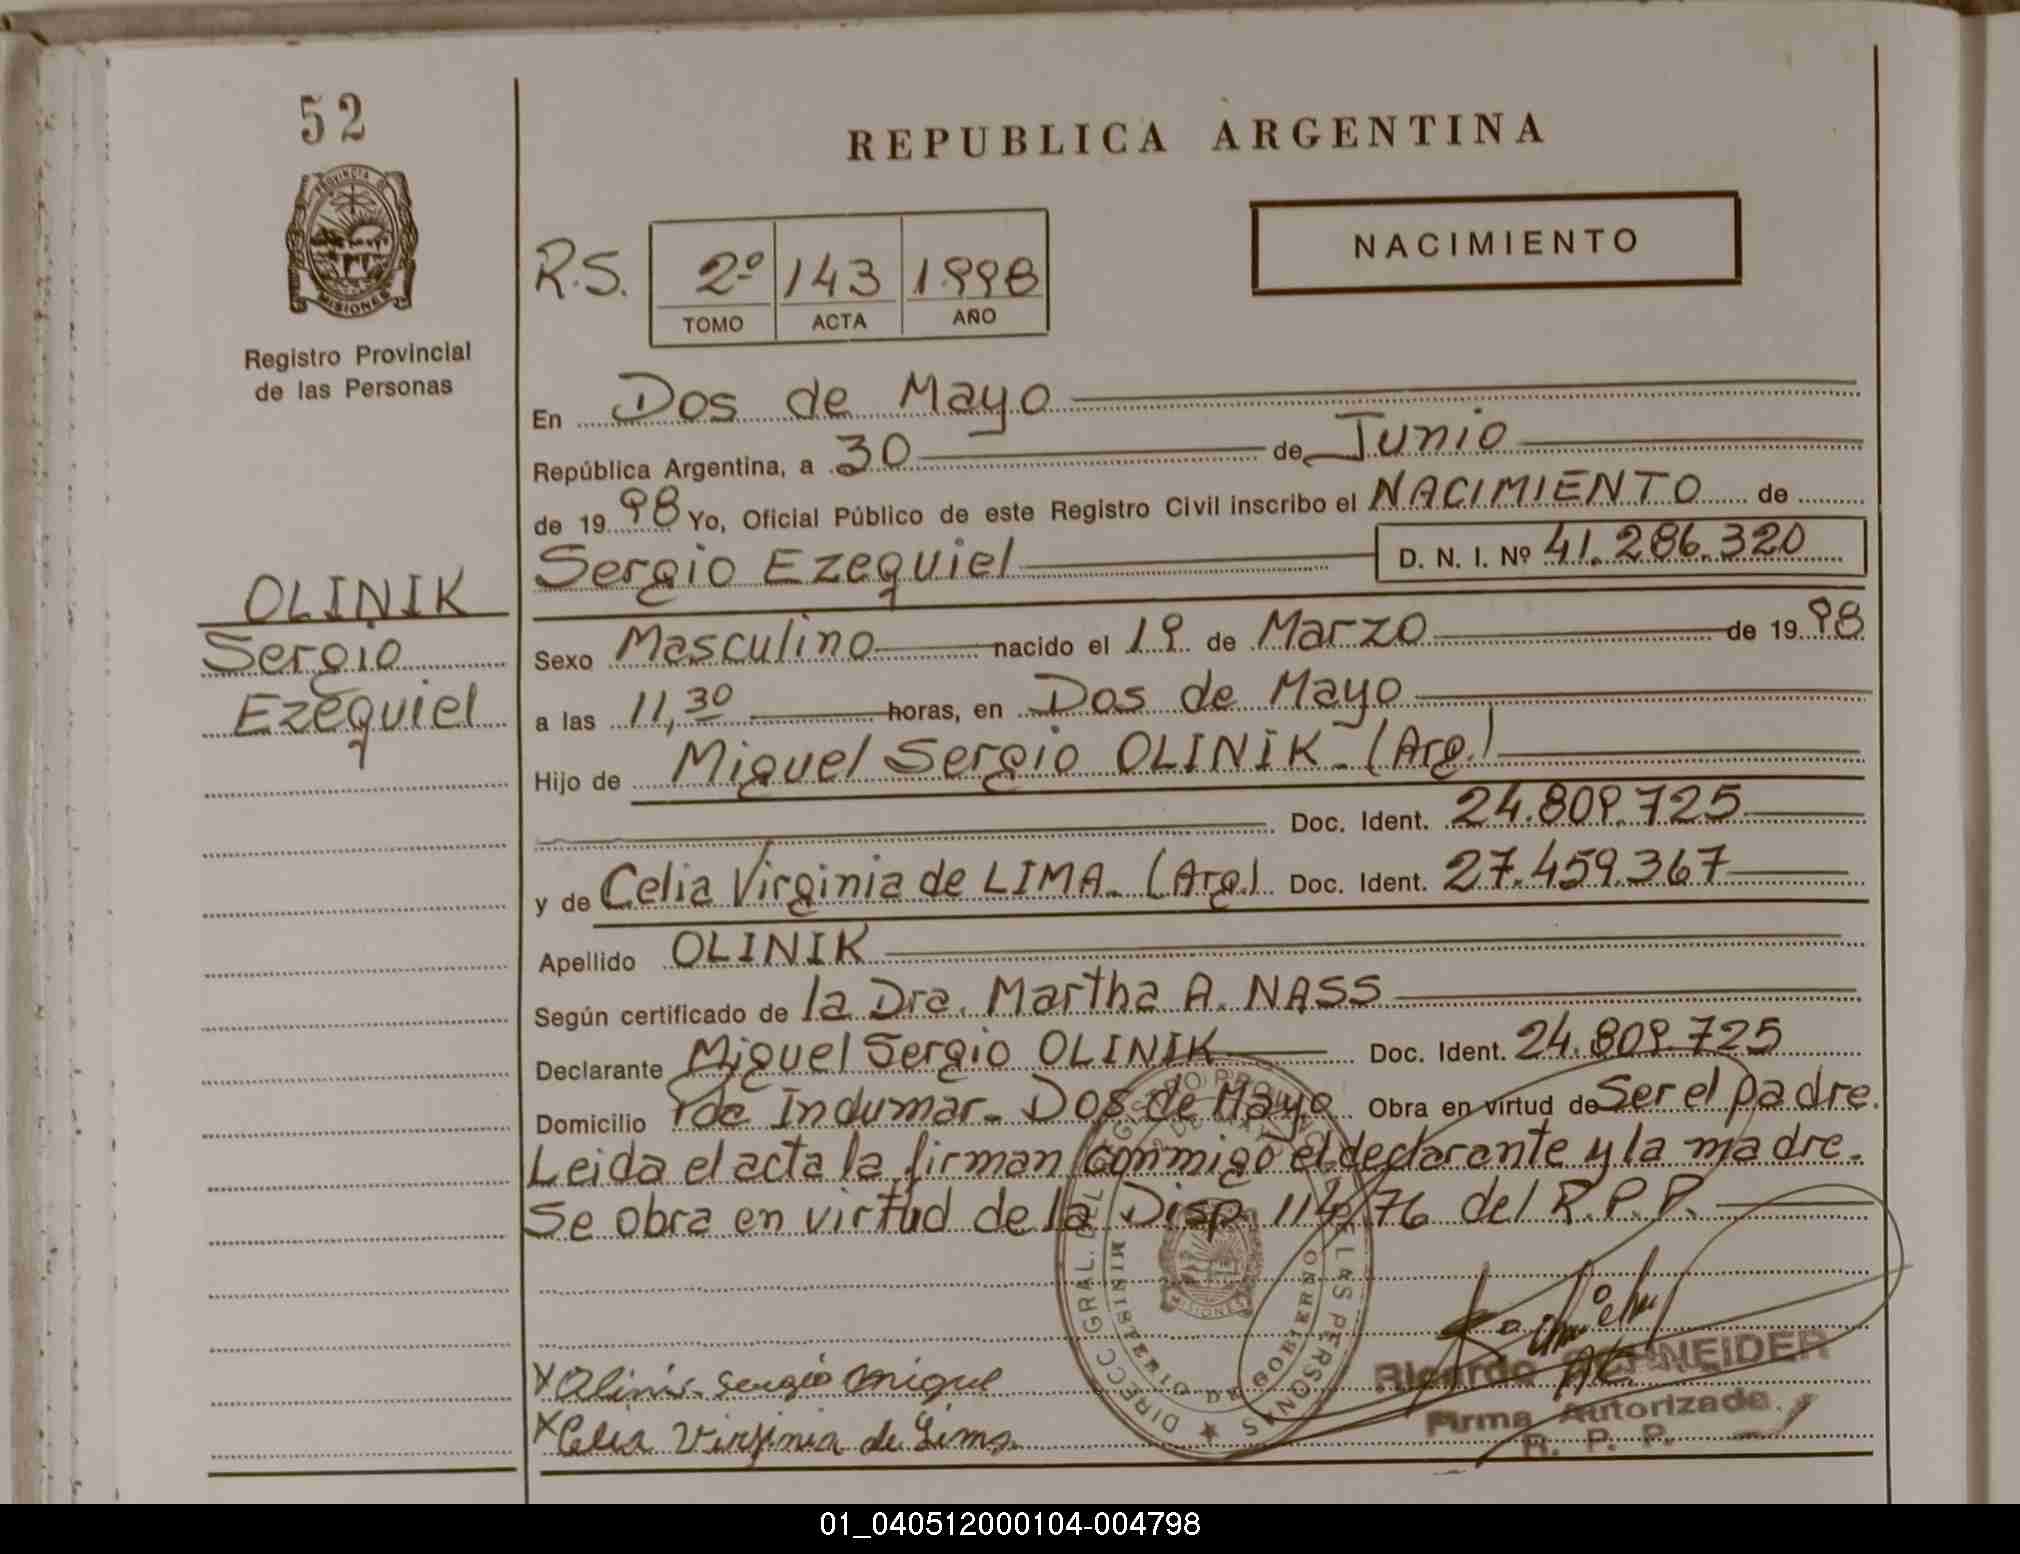 52
REPUBLICA ARGENTINA
PROVINCIA DE
MISIONES
Registro Provincial
de las Personas
NACIMIENTO
R.S. 2º 143 1998
TOMO ACTA AÑO
En Dos de Mayo
República Argentina, a 30 de Junio
de 19 98 Yo, Oficial Público de este Registro Civil inscribo el NACIMIENTO de
Sergio Ezequiel D. N. I. Nº 41.286.320
OLINIK
Sergio
Ezequiel
Sexo Masculino nacido el 19 de Marzo de 19 98
a las 11,30 horas, en Dos de Mayo
Hijo de Miguel Sergio OLINIK - (Arg.)
Doc. Ident. 24.809.725
y de Celia Virginia de LIMA - (Arg.) Doc. Ident. 27.459.367
Apellido OLINIK
Según certificado de la Dra. Martha A. NASS
Declarante Miguel Sergio OLINIK Doc. Ident. 24.809.725
Domicilio Pde Indumar - Dos de Mayo Obra en virtud de Ser el padre.
Leida el acta la firman conmigo el declarante y la madre.
Se obra en virtud de la Disp. 114/76 del R.P.P.
DIRECC. GRAL. DEL REGISTRO PROVINCIAL DE LAS PERSONAS
MINISTERIO DE GOBIERNO
MISIONES
X Olinik Sergio Miguel
X Celia Virginia de Lima
Ricardo SCHNEIDER
Firma Autorizada
R. P. P.
01_040512000104-004798